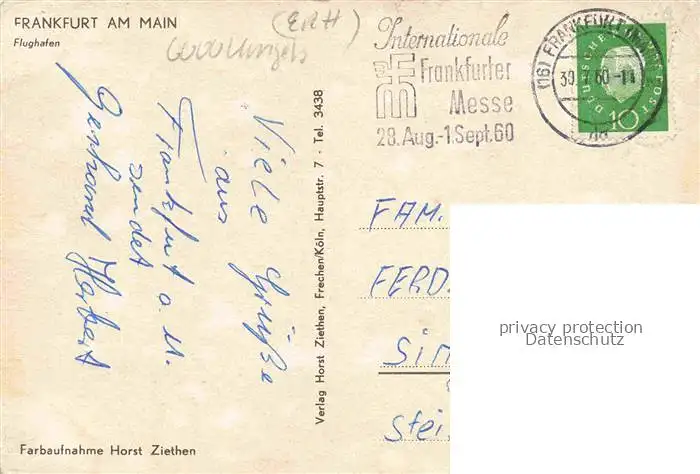 FRANKFURT AM MAIN
Flughafen
(ERH)
Internationale
Frankfurter
Messe
28. Aug.-1.Sept.60
(16) FRANKFURT
60
DEUTSCHE BUNDESPOST
10
Viele Grüße
aus
Frankfurt a. M.
sendet
Gerhard Herbert
Verlag Horst Ziethen, Frechen/Köln, Hauptstr. 7 · Tel. 3438
FAM.
FERD.
Sim
Stei
privacy protection
Datenschutz
Farbaufnahme Horst Ziethen